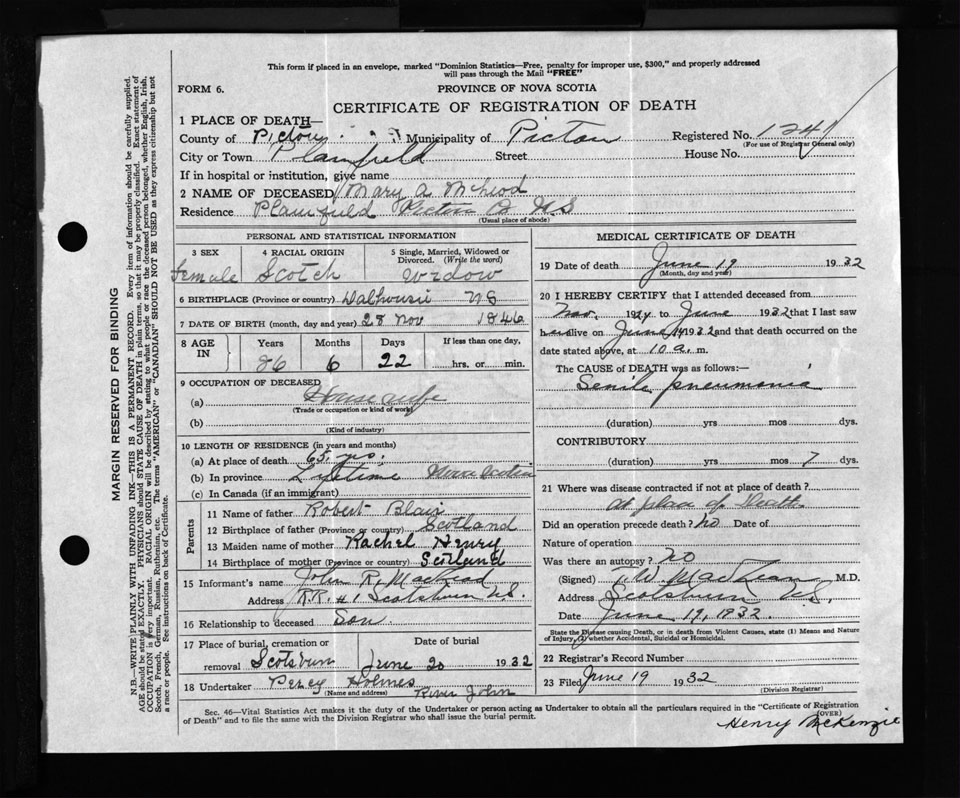 This form if placed in an envelope, marked "Dominion Statistics—Free, penalty for improper use, $300," and properly addressed
will pass through the Mail "FREE"
FORM 6.
PROVINCE OF NOVA SCOTIA
CERTIFICATE OF REGISTRATION OF DEATH
1 PLACE OF DEATH—
County of Pictou Municipality of Pictou Registered No. 1241
(For use of Registrar General only)
City or Town Plainfield Street House No.
If in hospital or institution, give name
2 NAME OF DECEASED Mary A McLeod
Residence Plainfield Pictou Co N.S
(Usual place of abode)
PERSONAL AND STATISTICAL INFORMATION
3 SEX 4 RACIAL ORIGIN 5 Single, Married, Widowed or
Divorced. (Write the word)
Female Scotch Widow
6 BIRTHPLACE (Province or country) Dalhousie NS
7 DATE OF BIRTH (month, day and year) 28 Nov 1846
8 AGE IN Years Months Days If less than one day,
86 6 22 hrs. or min.
9 OCCUPATION OF DECEASED
(a) Housewife
(Trade or occupation or kind of work)
(b)
(Kind of industry)
10 LENGTH OF RESIDENCE (in years and months)
(a) At place of death 65 yrs.
(b) In province Lifetime Nova Scotia
(c) In Canada (if an immigrant)
Parents
11 Name of father Robert Blair
12 Birthplace of father (Province or country) Scotland
13 Maiden name of mother Rachel Henry
14 Birthplace of mother (Province or country) Scotland
15 Informant's name John R. MacLeod
Address R.R. #1 Scotsburn N.S.
16 Relationship to deceased Son
17 Place of burial, cremation or Date of burial
removal Scotsburn June 20 1932
18 Undertaker Percy Holmes River John
(Name and address)
MEDICAL CERTIFICATE OF DEATH
19 Date of death June 19 1932
(Month, day and year)
20 I HEREBY CERTIFY that I attended deceased from
Nov. 1924 to June 1932 that I last saw
her alive on June 1932 and that death occurred on
date stated above, at 10 a. m.
The CAUSE of DEATH was as follows:—
Senile pneumonia
(duration) yrs mos dys.
CONTRIBUTORY
(duration) yrs mos 7 dys.
21 Where was disease contracted if not at place of death?
At place of death
Did an operation precede death? no Date of
Nature of operation
Was there an autopsy? no
(Signed) MacLean M.D.
Address Scotsburn N.S.
Date June 19, 1932
State the Disease causing Death, or in death from Violent Causes, state (1) Means and Nature
of Injury, (2) whether Accidental, Suicidal or Homicidal.
22 Registrar's Record Number
23 Filed June 19 1932
(Division Registrar)
Henry McKenzie
Sec. 46—Vital Statistics Act makes it the duty of the Undertaker or person acting as Undertaker to obtain all the particulars required in the "Certificate of Registration
of Death" and to file the same with the Division Registrar who shall issue the burial permit.
(OVER)
MARGIN RESERVED FOR BINDING
N.B.—WRITE PLAINLY WITH UNFADING INK—THIS IS A PERMANENT RECORD. Every item of information should be carefully supplied.
AGE should be stated EXACTLY. PHYSICIANS should STATE CAUSE OF DEATH in plain terms, so that it may be properly classified. Exact statement of
OCCUPATION is very important. RACIAL ORIGIN will be described by stating to what people or race the deceased person belonged, whether English, Irish,
Scotch, French, German, Russian, Ruthenian, etc. The terms "AMERICAN" or "CANADIAN" SHOULD NOT BE USED as they express citizenship but not
a race or people. See instructions on back of Certificate.